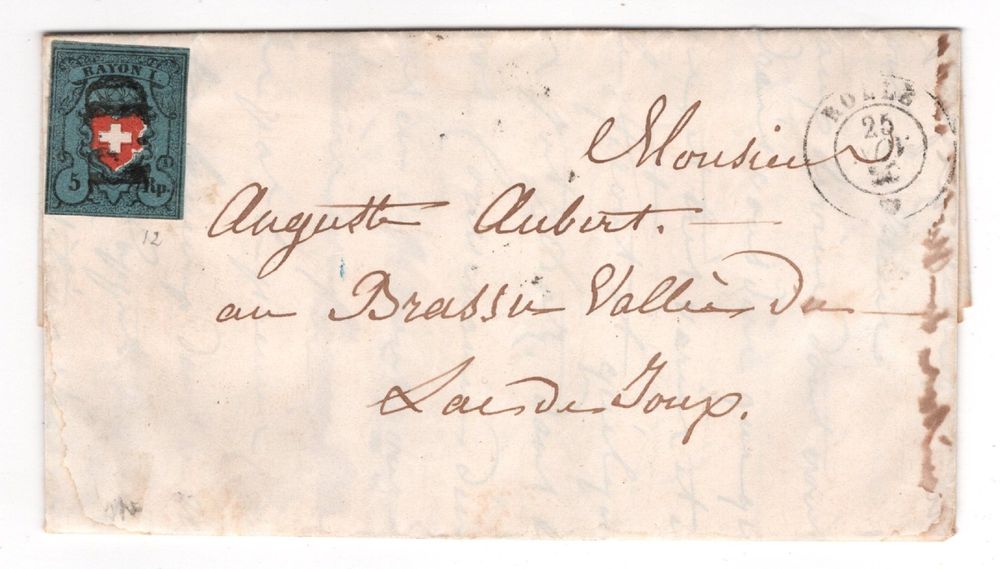 RAYON I
5 Rp.
12
ROLLE
25
Monsieur
Auguste Aubert.
au Brassu Vallée du
Lac de Joux.